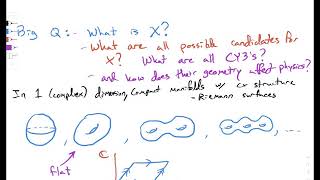 Big Q:- What is X?
- What are all possible candidates for
X? What are all CY3's?
- and how does their geometry affect physics?
In 1 (complex) dimension, compact manifolds w/ cx structure
- Riemann surfaces
flat
C